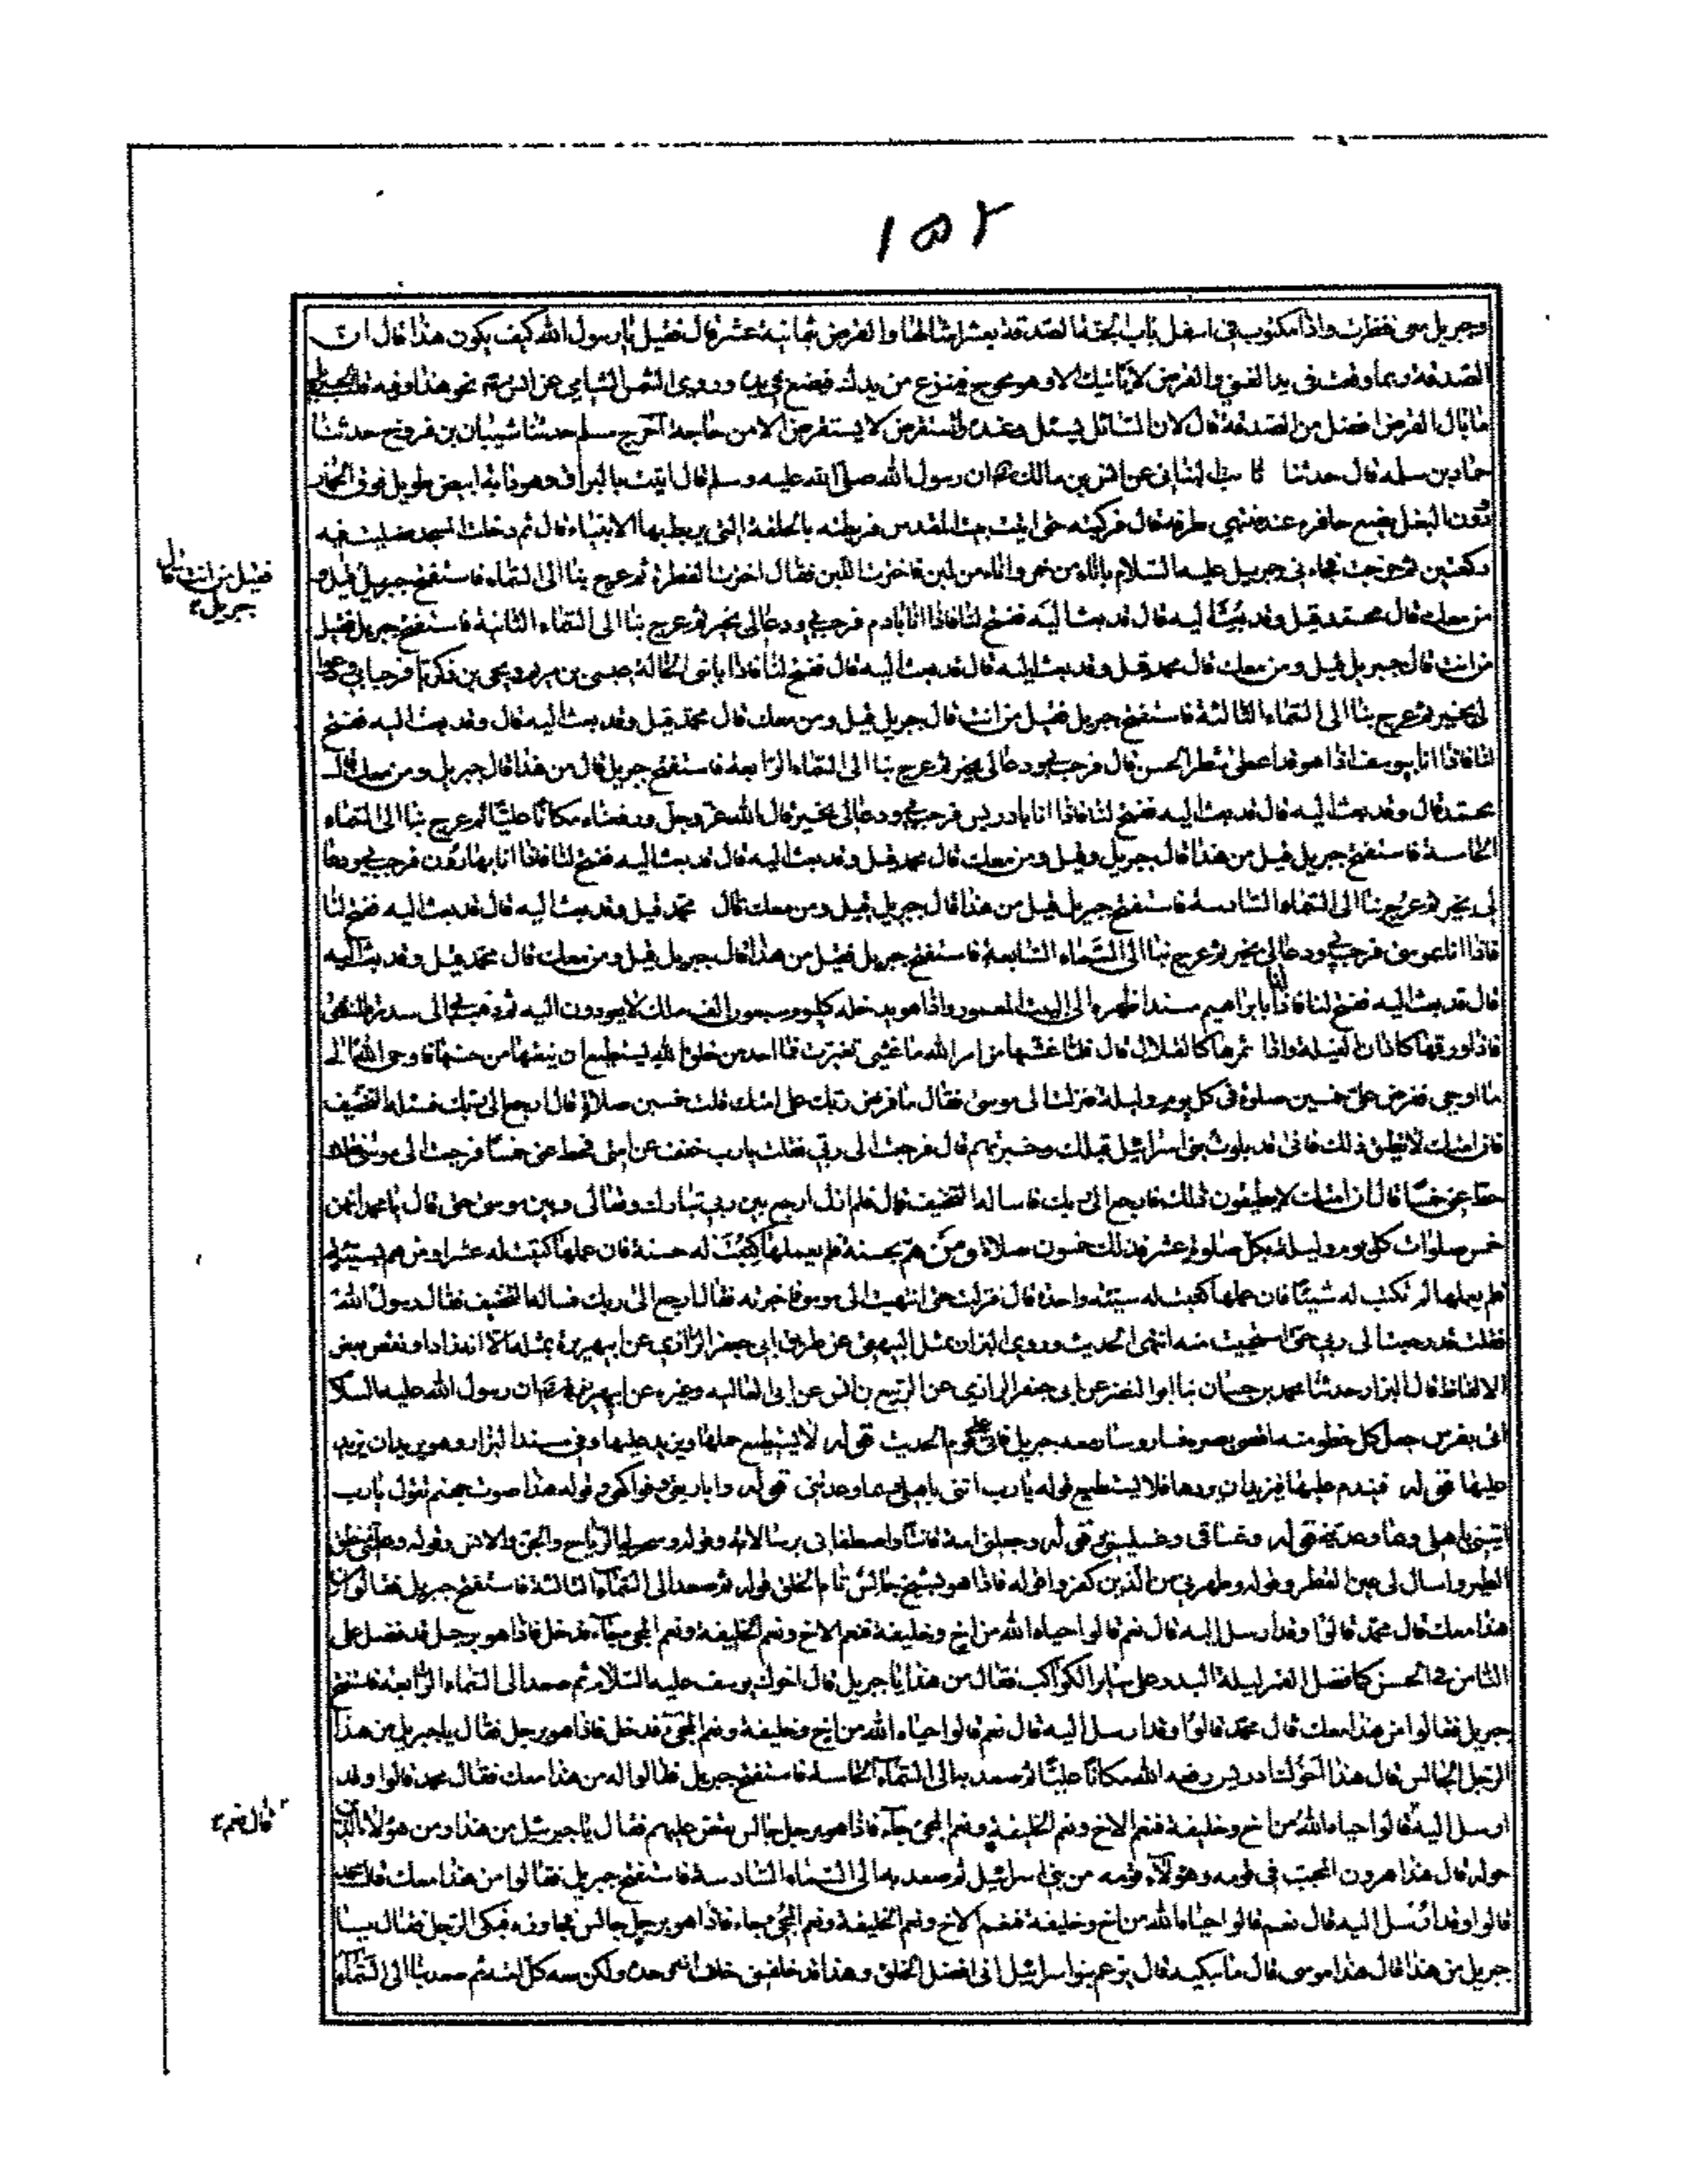 ١٥٢
وجبريل معى فنظرت واذا مكتوب فى اسفل باب الجنة الصدقة بعشر امثالها والقرض ثمانية عشر قال فقيل يا رسول الله كيف يكون هذا قال ان
الصدقة ربما وقعت فى يد الغنى والقرض لا يأتيك الا وهو محوج فينزع من يدك فيضع فى يده وروى الشامى عن انس نحو هذا وفيه قلت لجبريل
ما بال القرض افضل من الصدقة قال لان السائل يسئل وعنده والمستقرض لا يستقرض الا من حاجة اخرج مسلم حدثنا شيبان بن فروخ حدثنا
حماد بن سلمه قال حدثنا ثابت البنانى عن انس بن مالك ان رسول الله صلى الله عليه وسلم قال اتيت بالبراق وهو دابة ابيض طويل فوق الحمار
دون البغل يضع حافره عند منتهى طرفه قال فركبته حتى اتيت بيت المقدس فربطته بالحلقة التى يربط بها الانبياء قال ثم دخلت المسجد فصليت فيه
ركعتين ثم خرجت فجاءنى جبريل عليه السلام باناء من خمر واناء من لبن فاخترت اللبن فقال اخترت الفطرة ثم عرج بنا الى السماء فاستفتح جبريل قيل و
من معك قال محمد قيل وقد بعث اليه قال قد بعث اليه ففتح لنا فاذا انا بادم فرحب بى ودعا لى بخير ثم عرج بنا الى السماء الثانية فاستفتح جبريل فقيل
من انت قال جبريل قيل ومن معك قال محمد قيل وقد بعث اليه قال قد بعث اليه قال ففتح لنا فاذا بابنى الخالة عيسى بن مريم ويحيى بن زكريا فرحبا بى ودعوا
لى بخير ثم عرج بنا الى السماء الثالثة فاستفتح جبريل فقيل من انت قال جبريل قيل ومن معك قال محمد قيل وقد بعث اليه قال وقد بعث اليه ففتح
لنا فاذا انا بيوسف اذا هو قد اعطى شطر الحسن قال فرحب بى ودعا لى بخير ثم عرج بنا الى السماء الرابعة فاستفتح جبريل قال من هذا قال جبريل ومن معك قال
محمد قال وقد بعث اليه قال قد بعث اليه ففتح لنا فاذا انا بادريس فرحب بى ودعا لى بخير قال الله عز وجل ورفعناه مكانا عليا ثم عرج بنا الى السماء
الخامسة فاستفتح جبريل قيل من هذا قال جبريل وقيل ومن معك قال محمد قيل وقد بعث اليه قال قد بعث اليه ففتح لنا فاذا انا بهارون فرحب بى ودعا
لى بخير ثم عرج بنا الى السماء السادسة فاستفتح جبريل قيل من هذا قال جبريل قيل ومن معك قال محمد قيل وقد بعث اليه قال قد بعث اليه ففتح لنا
فاذا انا بموسى فرحب بى ودعا لى بخير ثم عرج بنا الى السماء السابعة فاستفتح جبريل فقيل من هذا قال جبريل قيل ومن معك قال محمد قيل وقد بعث اليه
قال قد بعث اليه ففتح لنا فاذا انا بابراهيم مسندا ظهره الى البيت المعمور واذا هو يدخله كل يوم سبعون الف ملك لا يعودون اليه ثم ذهب بى الى سدرة المنتهى
فاذا ورقها كاذان الفيلة واذا ثمرها كالقلال قال فلما غشيها من امر الله ما غشى تغيرت فما احد من خلق الله يستطيع ان ينعتها من حسنها فاوحى الله الى
ما اوحى ففرض على خمسين صلوة فى كل يوم وليلة فنزلت الى موسى فقال ما فرض ربك على امتك قلت خمسين صلاة قال ارجع الى ربك فسئله التخفيف
فان امتك لا تطيق ذلك فانى قد بلوت بنى اسرائيل قبلك وخبرتهم قال فرجعت الى ربى فقلت يارب خفف عن امتى فحط عنى خمسا فرجعت الى موسى فقلت
حط عنى خمسا قال ان امتك لا يطيقون ذلك فارجع الى ربك فاساله التخفيف قال فلم ازل ارجع بين ربى تبارك وتعالى وبين موسى حتى قال يا محمد انهن
خمس صلوات كل يوم وليلة بكل صلوة عشر فذلك خمسون صلاة ومن هم بحسنة فلم يعملها كتبت له حسنة فان عملها كتبت له عشرا ومن هم بسيئة
فلم يعملها لم تكتب له شيئا فان عملها كتبت له سيئه واحدة قال فنزلت حتى انتهيت الى موسى فاخبرته فقال ارجع الى ربك فساله التخفيف فقال رسول الله
فقلت قد رجعت الى ربى حتى استحييت منه انتهى الحديث وروى البزار مثل البيهقى عن طريق ابى جعفر الرازى عن ابيهريرة بمثله الا انه زاد او نقص بعض
الالفاظ قال البزار حدثنا محمد بن حسان ثنا ابو النضر عن ابى جعفر الرازى عن الربيع بن انس عن ابى العاليه وغيره عن ابيهريرة ان رسول الله عليه السلا
اتى بفرس جعل كل خطو منه اقصى بصره فسار وسار معه جبريل فاتى على قوم الحديث قوله لا يستطيع حملها ويزيد عليها وفى مسند البزار وهو يريد ان يزيد
عليها قوله فيندم عليها فيريد ان يردها فلا يستطيع قوله يارب اتنى باهلى وبما وعدتنى قوله واباريقى وفواكهى وقوله هذا صوت جهنم تقول يارب
ايتنى باهلى وبما وعدتنى قوله وغساقى وغسلينى قوله وجعلنى امة قانتا واصطفانى برسالاته وقوله وسخر لى الرياح والجن والانس وقوله وعلمنى منطق
الطير واسال لى عين القطر وقوله وطهرنى من الذين كفروا قوله فاذا هو بشيخ جالس تام الخلق قوله ثم صعد الى السماء الثالثة فاستفتح جبريل فقالوا من
هذا معك قال محمد قالوا وقد ارسل اليه قال نعم قالوا حياه الله من اخ وخليفة فنعم الاخ ونعم الخليفة ونعم المجى جاء فدخل فاذا هو برجل قد فضل على
الناس فى الحسن كما فضل القمر ليلة البدر على ساير الكواكب فقال من هذا يا جبريل قال اخوك يوسف عليه السلام ثم صعد الى السماء الرابعة فاستفتح
جبريل فقالوا من هذا معك قال محمد قالوا وقد ارسل اليه قال نعم قالوا حياه الله من اخ وخليفة ونعم المجئ فدخل فاذا هو برجل فقال يا جبريل من هذا
الرجل الجالس قال هذا اخوك ادريس رفعه الله مكانا عليا ثم صعد بها الى السماء الخامسة فاستفتح جبريل فقالوا له من هذا معك فقال محمد قالوا وقد
ارسل اليه قالوا حياه الله من اخ وخليفة فنعم الاخ ونعم الخليفة ونعم المجئ جاء فاذا هو برجل جالس يقص عليهم فقال يا جبرئيل من هذا ومن هؤلاء الذين
حوله قال هذا هرون المحبب فى قومه وهؤلاء قومه من بنى اسرائيل ثم صعد بها الى السماء السادسة فاستفتح جبريل فقالوا من هذا معك قال محمد
قالوا وقد ارسل اليه قال نعم قالوا حياه الله من اخ وخليفة فنعم الاخ ونعم الخليفة ونعم المجئ جاء فاذا هو برجل جالس فجاوزه فبكى الرجل فقال يا
جبريل من هذا قال هذا موسى قال ما يبكيه قال يزعم بنو اسرائيل انى افضل الخلق وهذا قد خلفنى ولكن معه كل امته ثم صعد بنا الى السماء
فقيل من انت قال
جبريل
قال نعم